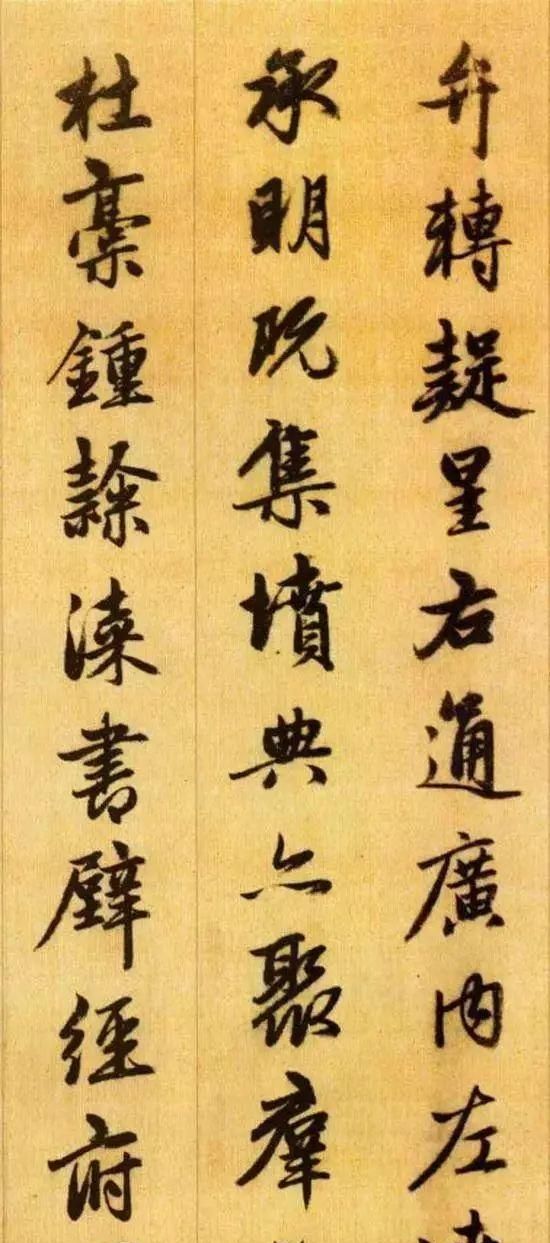 弁轉疑星右通廣内左
承明既集墳典亦聚羣
杜稾鍾隸漆書壁經府